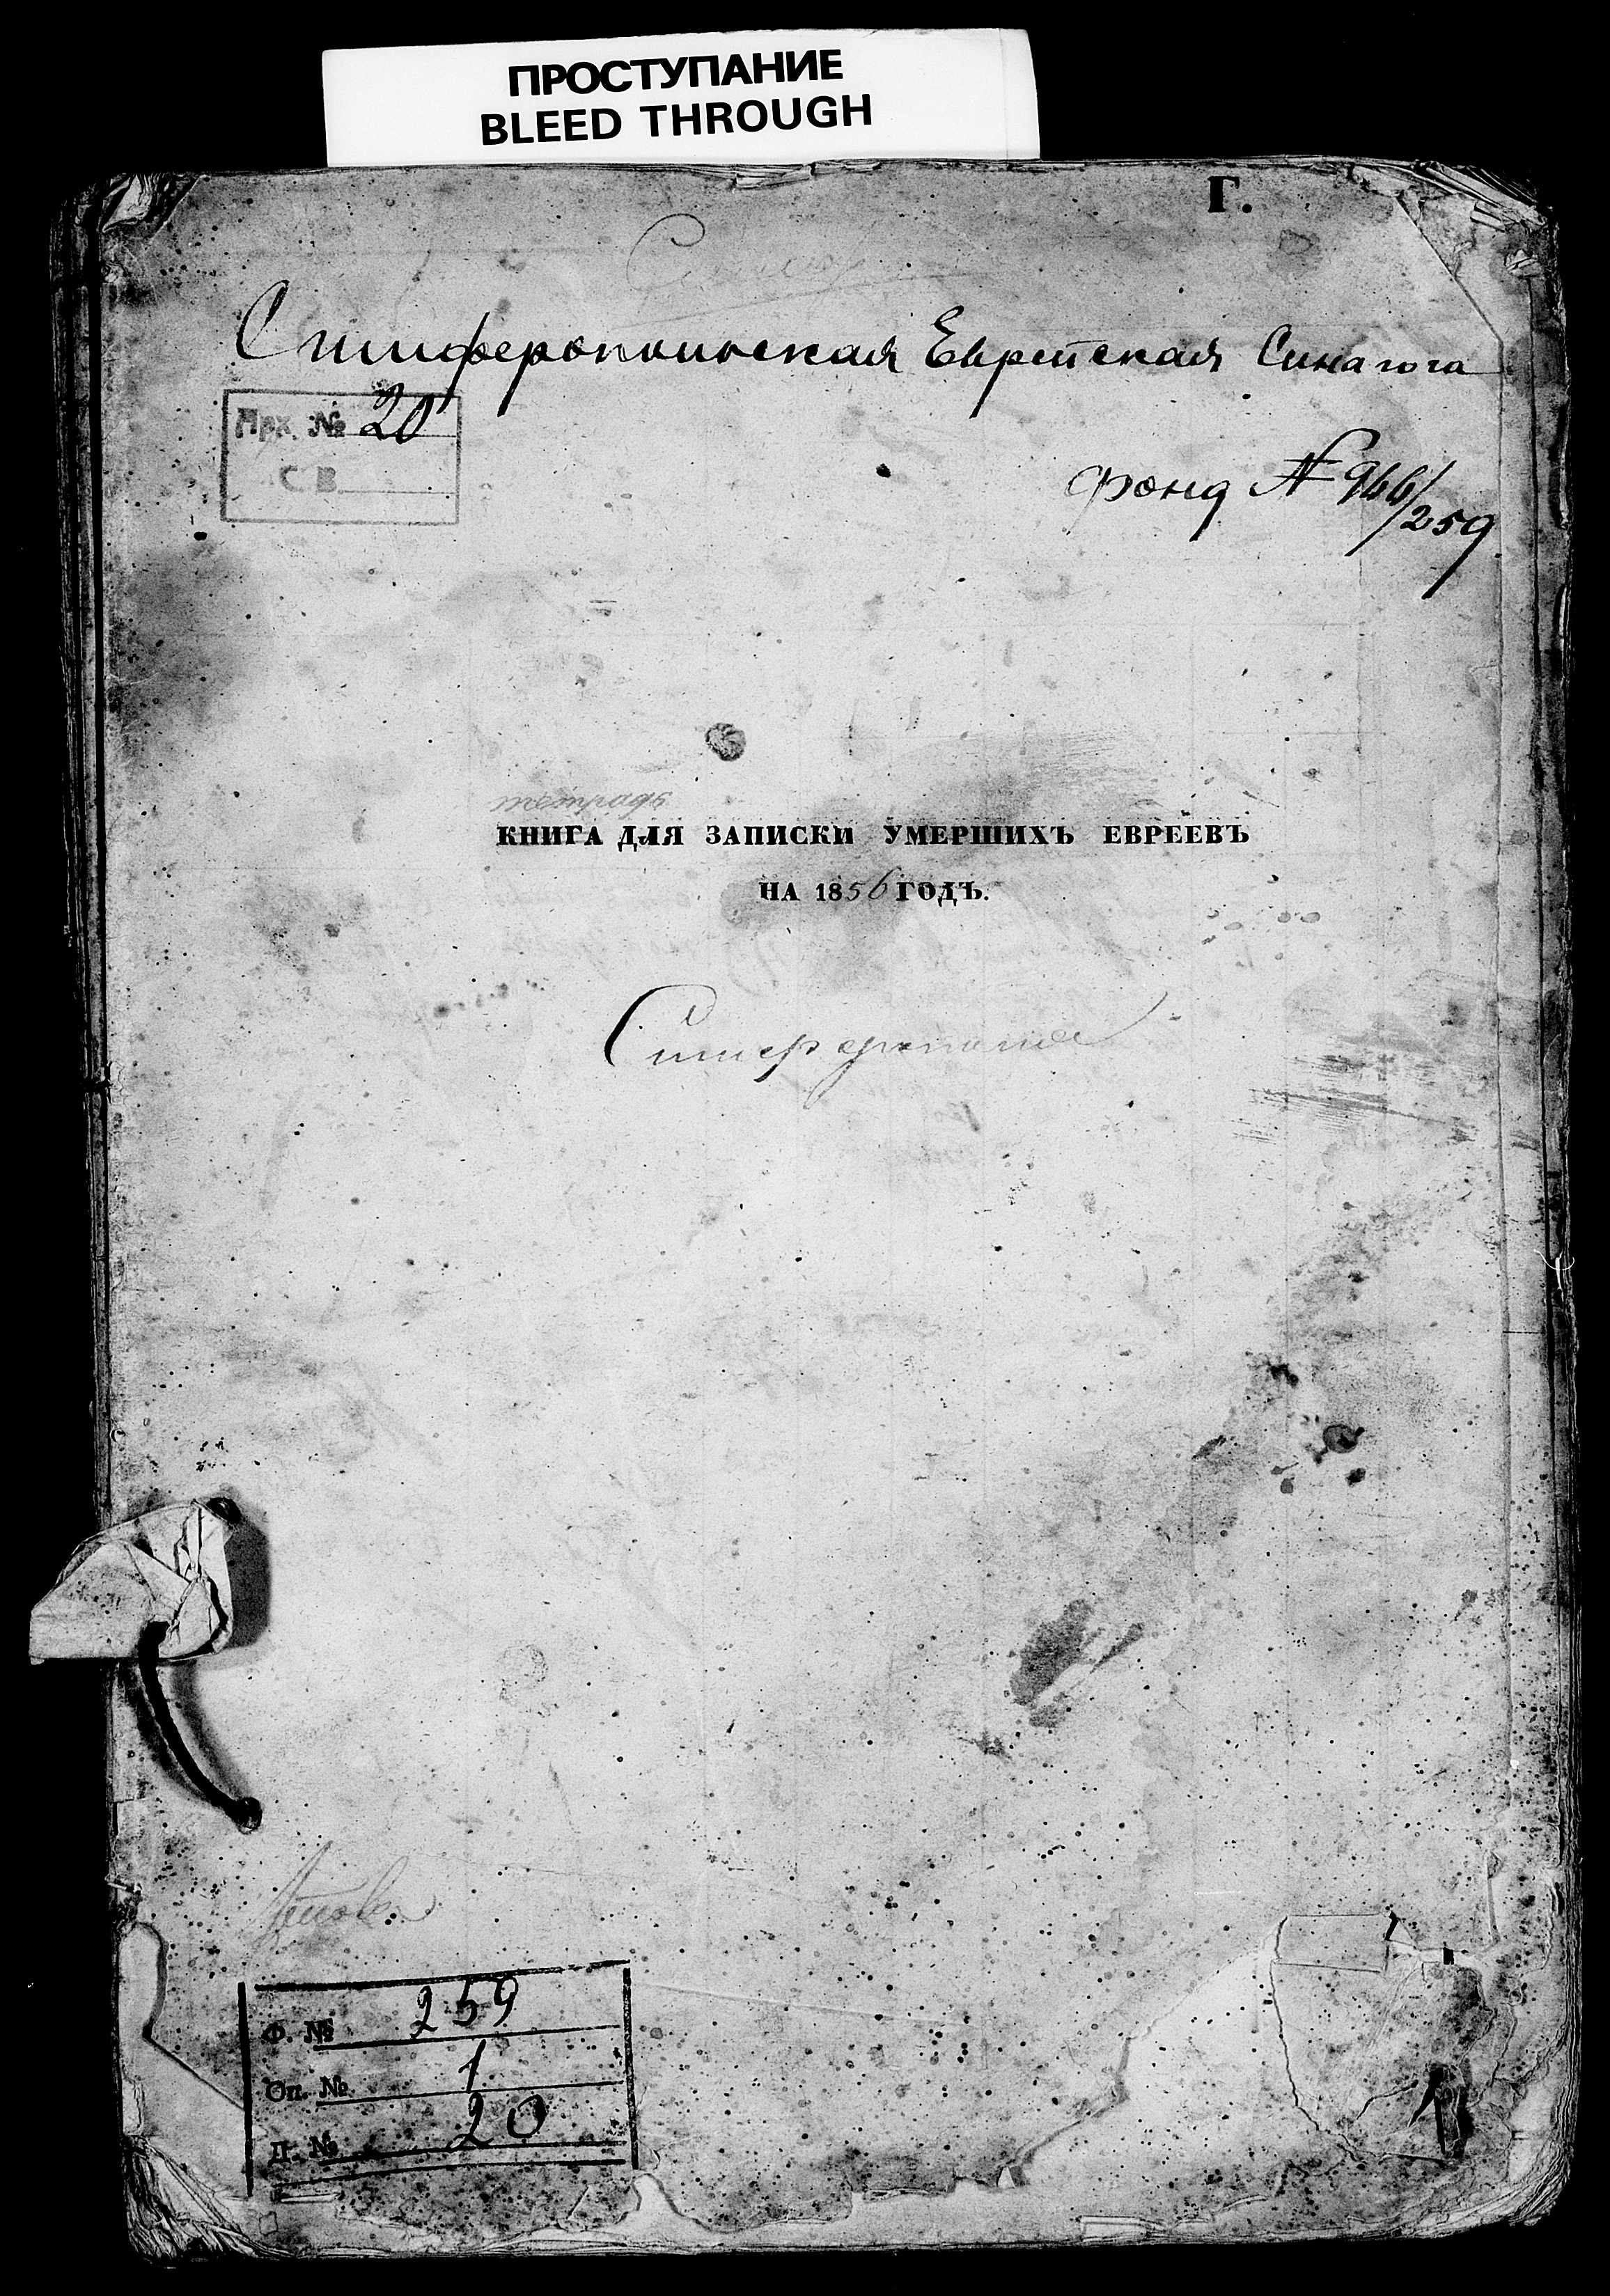 ПРОСТУПАНИЕ
BLEED THROUGH
Г.
Симферопольская Еврейская Синагога
Арх. № 20
СВ
фонд № 966/259
тетрадь
КНИГА ДЛЯ ЗАПИСКИ УМЕРШИХЪ ЕВРЕЕВЪ
НА 1856 ГОДЪ.
Симферополь
Ф. № 259
Оп. № 1
Д. № 20